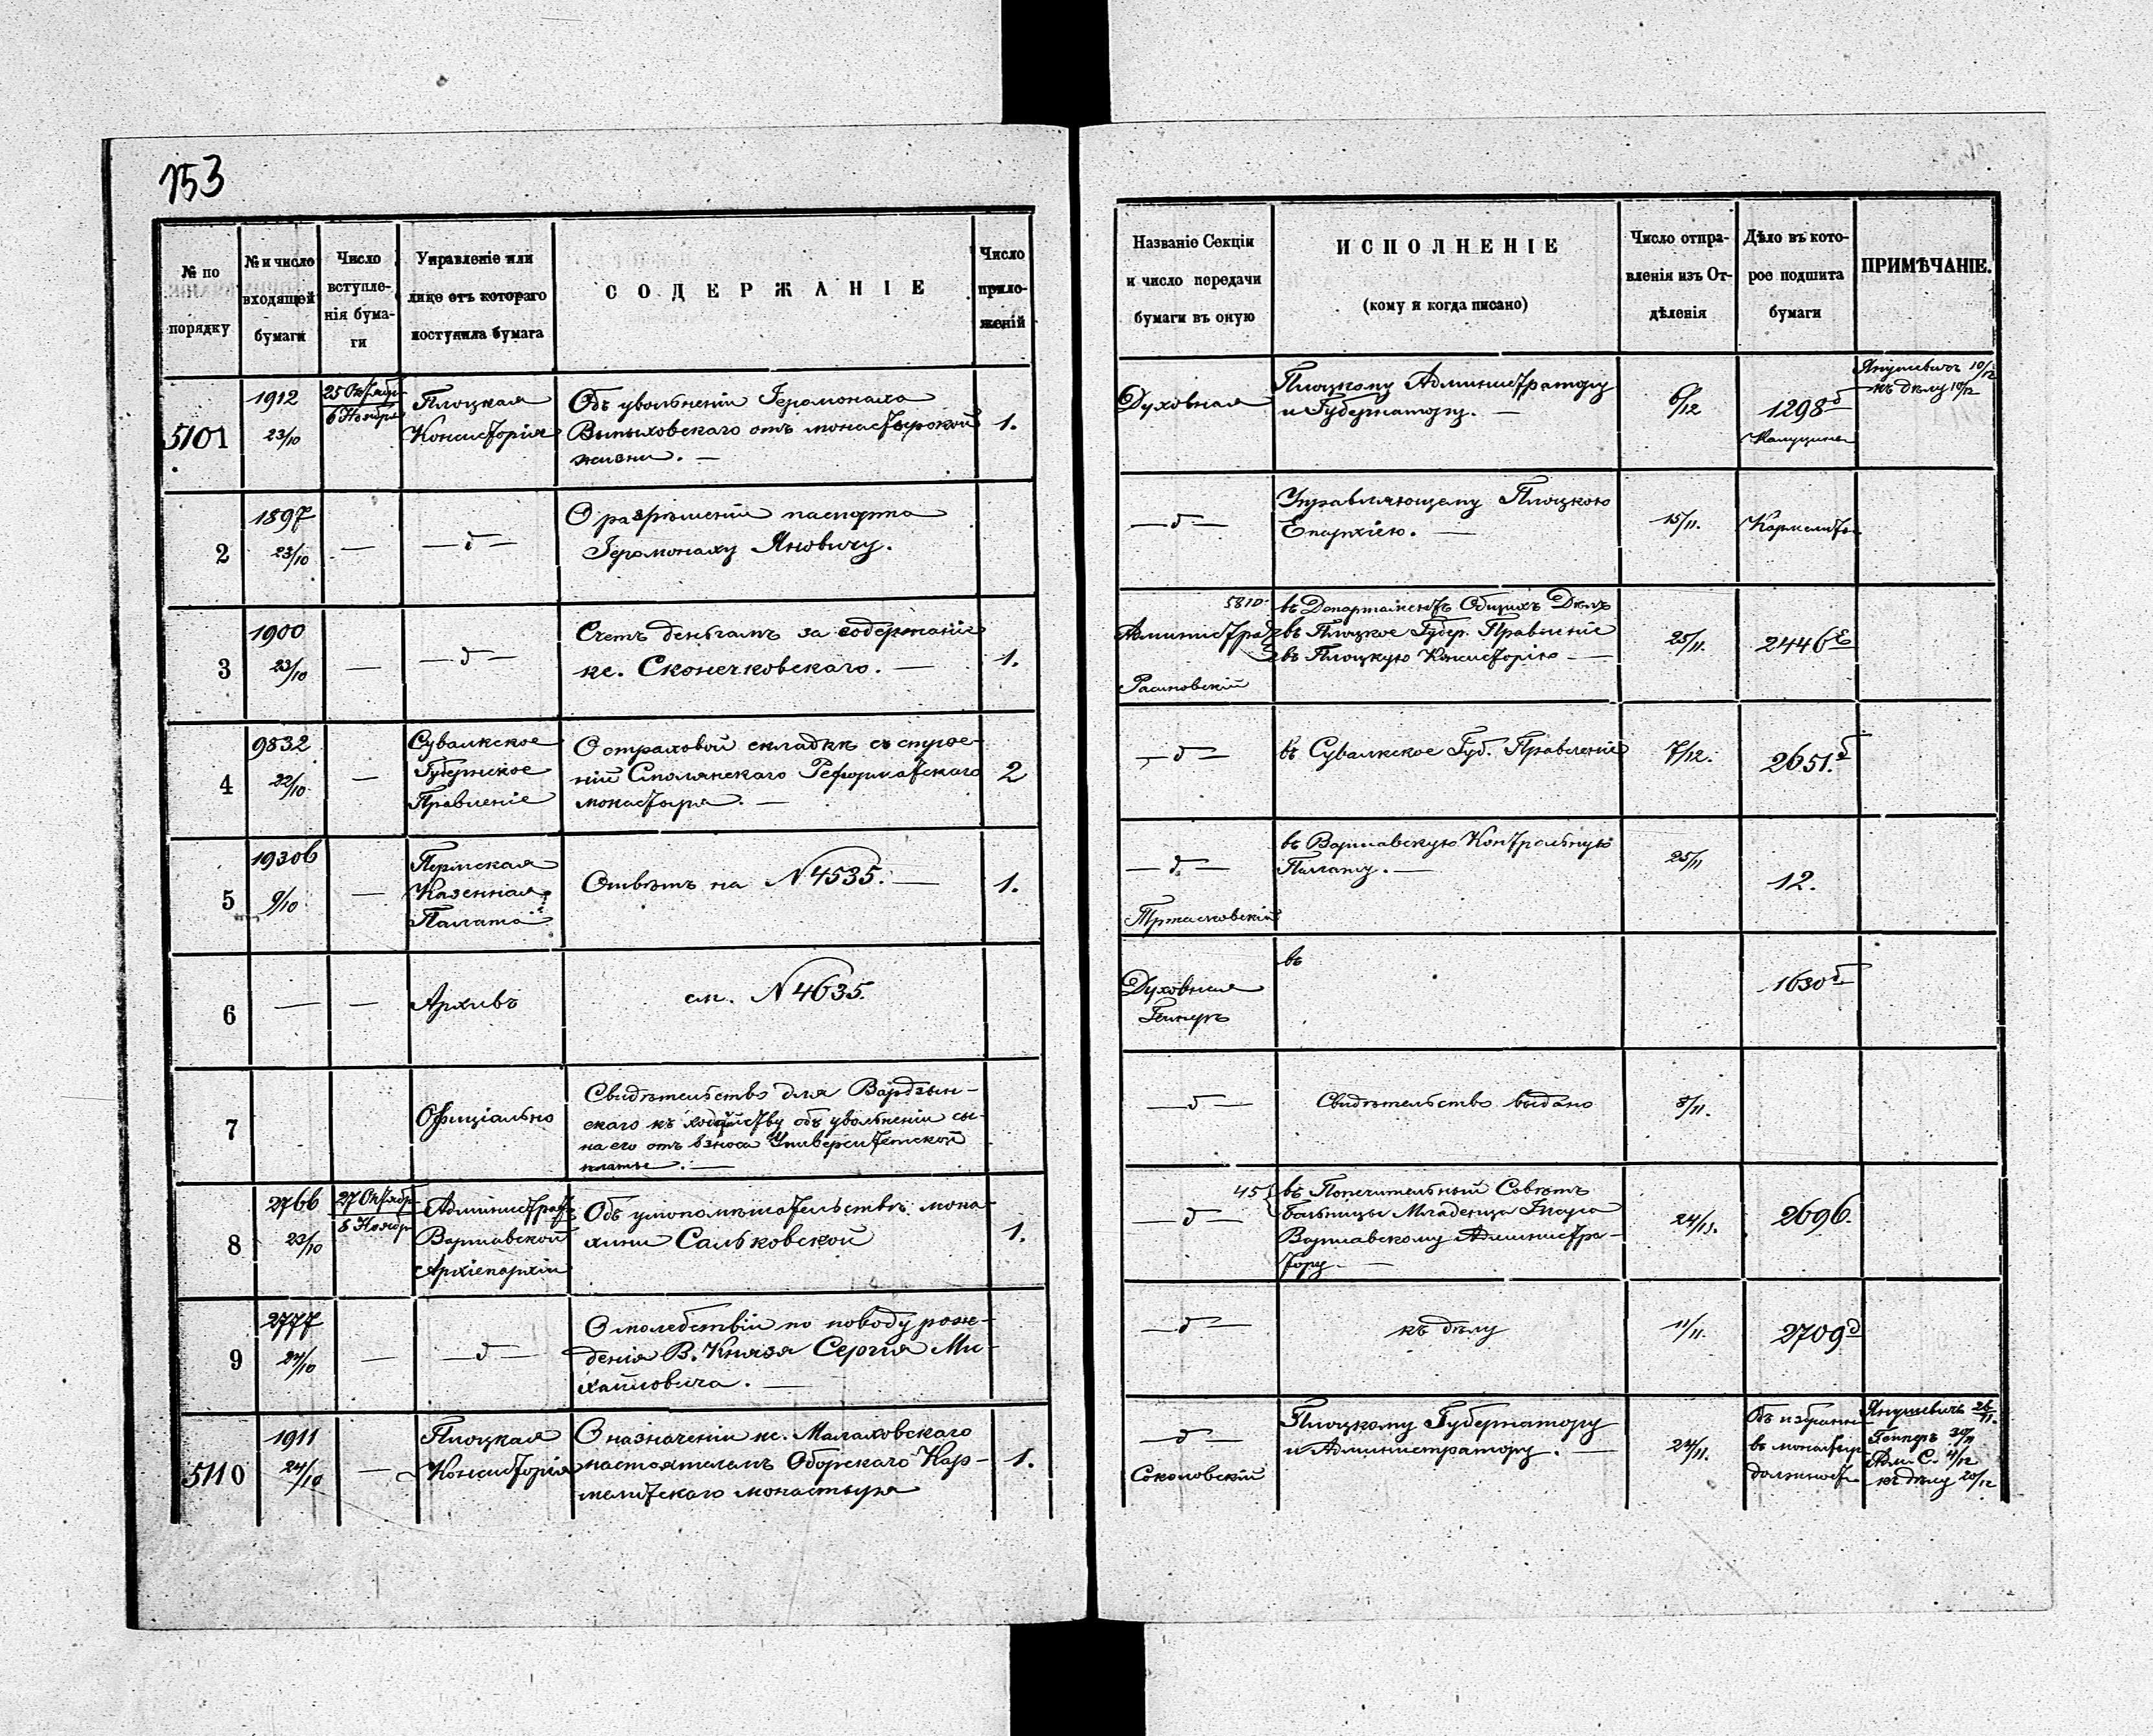 153
№ по порядку
№ и число входящей бумаги
Число вступленія бумаги
Управленіе или лице отъ котораго поступила бумага
СОДЕРЖАНІЕ
Число приложеній
Названіе Секціи и число передачи бумаги въ оную
ИСПОЛНЕНІЕ
(кому и когда писано)
Число отправленія изъ Отдѣленія
Дѣло въ которое подшита бумаги
ПРИМѢЧАНІЕ.
5101
1912
23/10
25 Октября
6 Ноября
Плоцкая
Консисторія
Объ увольненіи Іеромонаха
Выпыховскаго отъ монастырской
жизни. —
1.
Духовная
Плоцкому Администратору
и Губернатору. —
6/12
1298 б
Янушевичъ 10/12
къ дѣлу 10/12
2
1897
23/10
—
— д —
О разрѣшеніи паспорта
Іеромонаху Яновичу.
— д —
Управляющему Плоцкою
Епархіею. —
15/11.
3
1900
23/10
—
— д —
Счетъ деньгамъ за содержаніе
кс. Сконечковскаго. —
1.
5810
Администра
Расиновскій
въ Департаментъ Общихъ Дѣлъ
въ Плоцкое Губер. Правленіе
въ Плоцкую Консисторію —
25/11.
2446 Е
4
9832
22/10
—
Сувалкское
Губернское
Правленіе
О страховой складкѣ съ строе-
ній Смолянскаго Реформатскаго
монастыря. —
2
— д —
въ Сувалкское Губ. Правленіе
7/12.
2651. б
5
19306
9/10
—
Пермская
Казенная
Палата
Отвѣтъ на N 4535. —
1.
— д —
въ Варшавскую Контрольную
Палату. —
25/11
12.
6
—
—
Архивъ
см. N 4635.
Духовная
въ
1630
7
Офиціально
Свидѣтельство для Вардзын-
скаго къ ходатайству объ увольненіи сы-
на его отъ взноса Университетской
платы. —
— д —
Свидѣтельство выдано
8/11.
8
2766
23/10
27 Октября
8 Ноября
Администратъ
Варшавской
Архіепархіи
Объ умопомѣшательствѣ мона-
хини Сальковской
1.
— д —
45
въ Попечительный Совѣтъ
больницы Младенца Іисуса
Варшавскому Администра-
тору. —
2696.
9
2777
24/10
—
— д —
О молебствіи по поводу рож-
денія В. Князя Сергія Ми-
хайловича. —
— д —
къ дѣлу
11/11.
2709 д
5110
1911
24/10
—
Плоцкая
Консисторія
О назначеніи кс. Малаховскаго
настоятелемъ Оборскаго Кар-
мелитскаго монастыря
1.
— д —
Соколовскій
Плоцкому Губернатору
и Администратору. —
24/11.
Объ избраніи
въ монастыр
должност
Янушевичъ 26/11.
Гейнеръ 30/11
Адм. С. 4/12
къ дѣлу 20/12